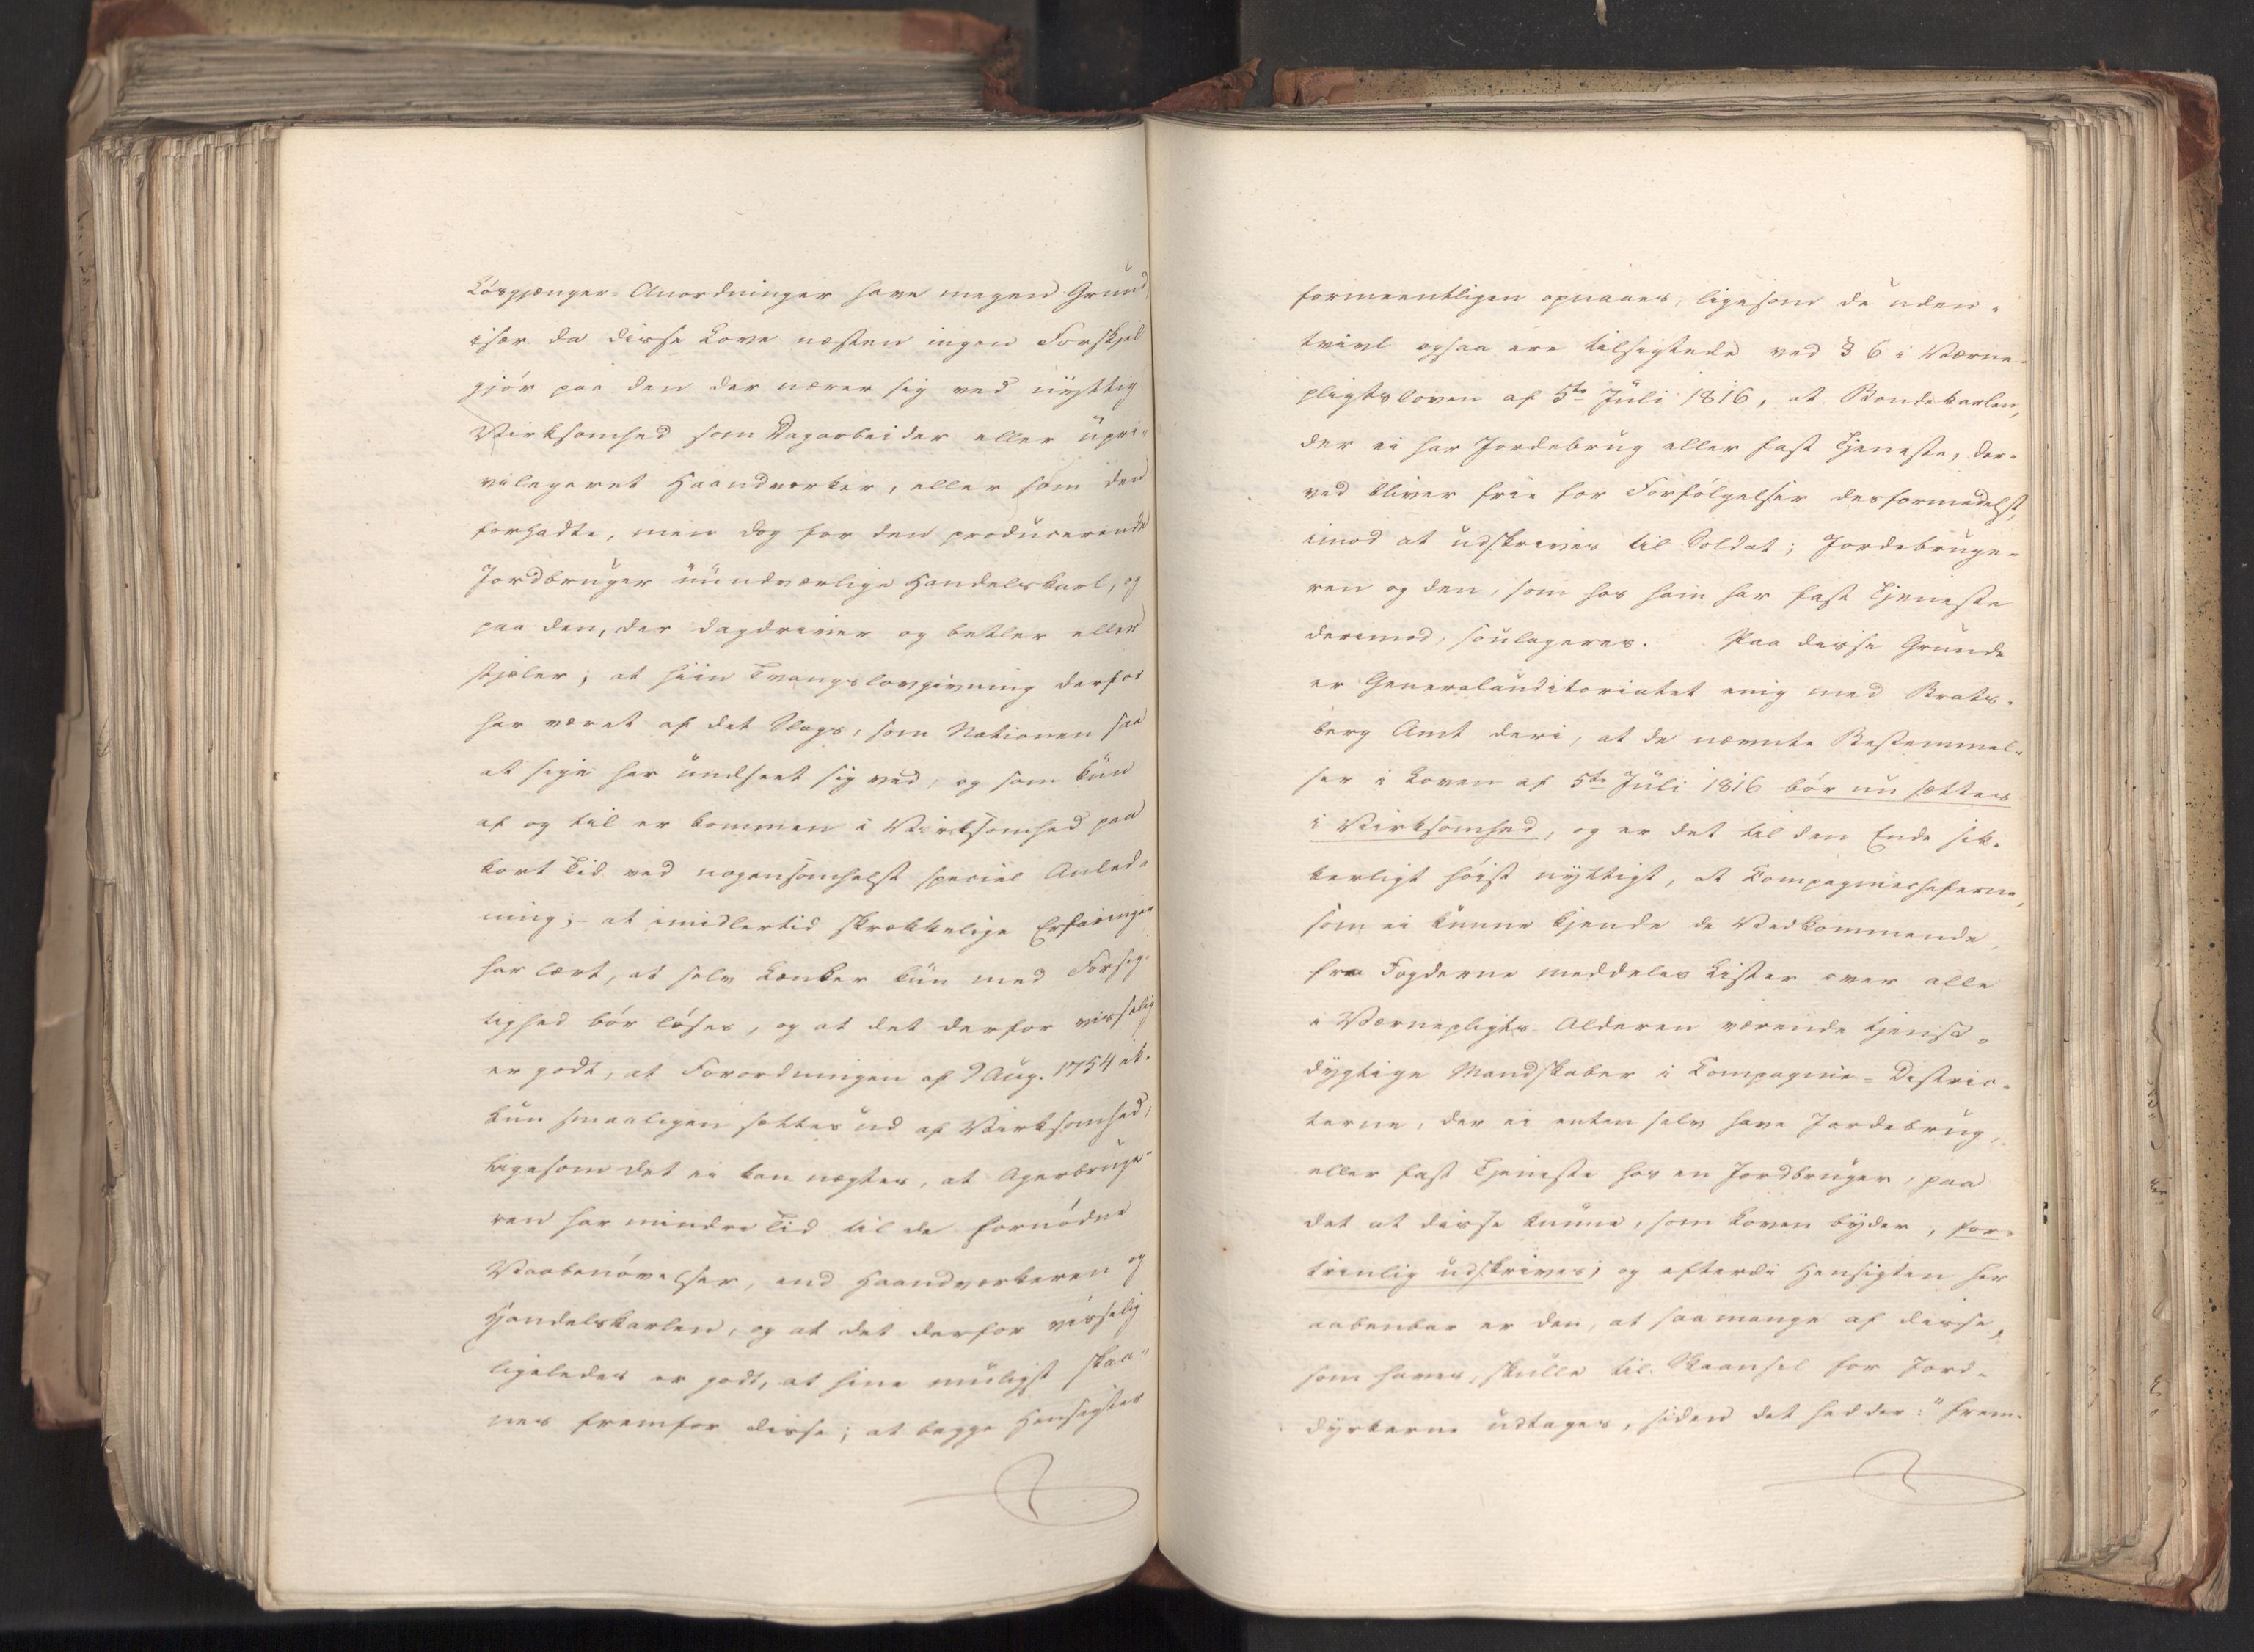 Løsgjænger-Anordninger have megen Grund,
især da disse Love næsten ingen Forskjel
gjør paa den der nærer sig ved nyttig
Virksomhed som Dagarbeider eller upri-
vilegeret Haandværker, eller som den
forhadte, men dog for den producerende
Jordbruger uundværlige Handelskarl, og
paa den, der dagdriver og betler eller
stjæler; at hiin Tvangslovgivning derfor
har været af det Slags, som Nationen saa
at sige har undseet sig ved, og som kun
af og til er kommen i Virksomhed paa
kort Tid ved nogensomhelst speciel Anled-
ning; - at imidlertid skrækkelige Erfaringer
har lært, at selv Lænker kun med Forsig-
tighed bør løses, og at det derfor visselig
er godt, at Forordningen af 9 Aug. 1754 etc.
kun smaaligen sættes ud af Virksomhed,
ligesom det ei kan nægtes, at Agerbruge-
ren har mindre Tid til de fornødne
Vaabenøvelser, end Haandværkeren og
Handelskarlen, og at det derfor visselig
ligeledes er godt, at hine muligst skaa-
nes fremfor disse; at begge Hensigter
formeentligen opnaaes, ligesom de uden-
tvivl ogsaa ere tilsigtede ved § 6 i Værne-
pligtsloven af 5te Juli 1816, at Bondekarlen,
der ei har Jordebrug eller fast Tjeneste, der-
ved bliver frie for Forfølgelser desformedelst,
imod at udskrives til Soldat; Jordebruge-
ren og den, som hos ham har fast Tjeneste
derimod, soulageres. Paa disse Grunde
er Generalauditoriatet enig med Brats-
berg Amt deri, at de nævnte Bestemmel-
ser i Loven af 5te Juli 1816 bør nu sættes
i Virksomhed, og er det til den Ende sik-
kerligt høist nyttigt, at Kompagniecheferne,
som ei kunne kjende de Vedkommende,
fra Fogderne meddeles Lister over alle
i Værnepligts-Alderen værende tjenst-
dygtige Mandskaber i Compagnie-Distric-
terne, der ei enten selv have Jordebrug,
eller fast Tjeneste hos en Jordbruger, paa
det at disse kunne, som Loven byder, for-
trinlig udskrives; og efterdi Hensigten her
aabenbar er den, at saamange af disse,
som haves, skulle til Skaansel for Jord-
dyrkerne udtages, siden det hedder: "frem-